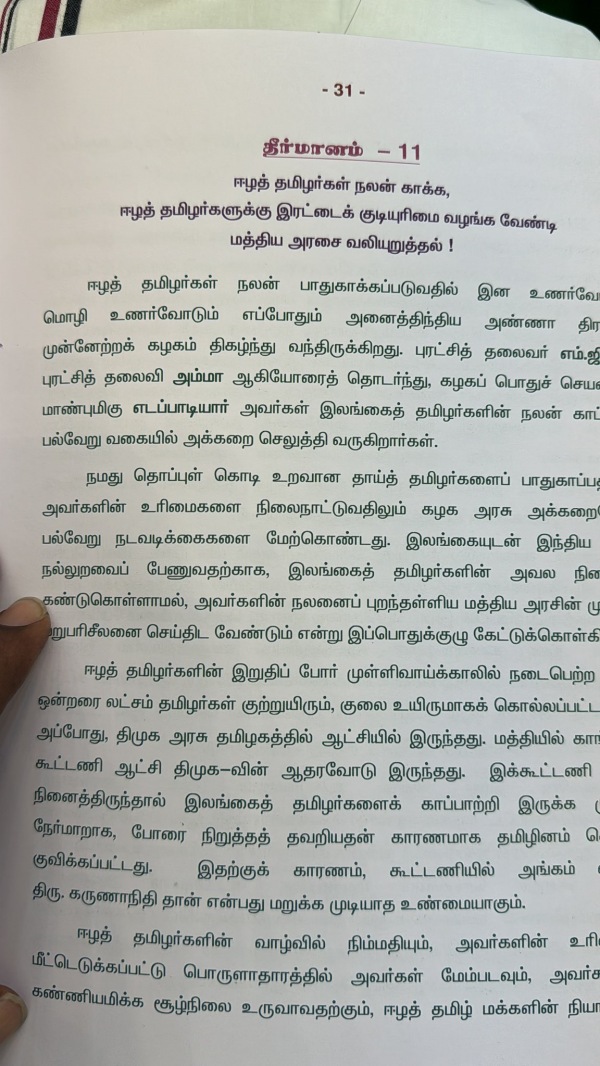 - 31 -
தீர்மானம் – 11
ஈழத் தமிழர்கள் நலன் காக்க,
ஈழத் தமிழர்களுக்கு இரட்டைக் குடியுரிமை வழங்க வேண்டி
மத்திய அரசை வலியுறுத்தல் !
ஈழத் தமிழர்கள் நலன் பாதுகாக்கப்படுவதில் இன
மொழி உணர்வோடும் எப்போதும் அனைத்திந்திய அண்ணா
முன்னேற்றக் கழகம் திகழ்ந்து வந்திருக்கிறது. புரட்சித் தலைவர்
புரட்சித் தலைவி அம்மா ஆகியோரைத் தொடர்ந்து, கழகப் பொதுச்
மாண்புமிகு எடப்பாடியார் அவர்கள் இலங்கைத் தமிழர்களின் நலன்
பல்வேறு வகையில் அக்கறை செலுத்தி வருகிறார்கள்.
நமது தொப்புள் கொடி உறவான தாய்த் தமிழர்களைப்
அவர்களின் உரிமைகளை நிலைநாட்டுவதிலும் கழக அரசு
பல்வேறு நடவடிக்கைகளை மேற்கொண்டது. இலங்கையுடன் இந்திய
நல்லுறவைப் பேணுவதற்காக, இலங்கைத் தமிழர்களின் அவல
கண்டுகொள்ளாமல், அவர்களின் நலனைப் புறந்தள்ளிய மத்திய அரசின்
செய்திட வேண்டும் என்று இப்பொதுக்குழு
ஈழத் தமிழர்களின் இறுதிப் போர் முள்ளிவாய்க்காலில் நடைபெற்ற
ஒன்றரை லட்சம் தமிழர்கள் குற்றுயிரும், குலை உயிருமாகக்
அப்போது, திமுக அரசு தமிழகத்தில் ஆட்சியில் இருந்தது. மத்தியில்
கூட்டணி ஆட்சி திமுக–வின் ஆதரவோடு இருந்தது. இக்கூட்டணி
நினைத்திருந்தால் இலங்கைத் தமிழர்களைக் காப்பாற்றி இருக்க
நேர்மாறாக, போரை நிறுத்தத் தவறியதன் காரணமாக தமிழினம்
குவிக்கப்பட்டது. இதற்குக் காரணம், கூட்டணியில் அங்கம்
திரு. கருணாநிதி தான் என்பது மறுக்க முடியாத உண்மையாகும்.
ஈழத் தமிழர்களின் வாழ்வில் நிம்மதியும், அவர்களின்
மீட்டெடுக்கப்பட்டு பொருளாதாரத்தில் அவர்கள் மேம்படவும்,
கண்ணியமிக்க சூழ்நிலை உருவாவதற்கும், ஈழத் தமிழ் மக்களின்